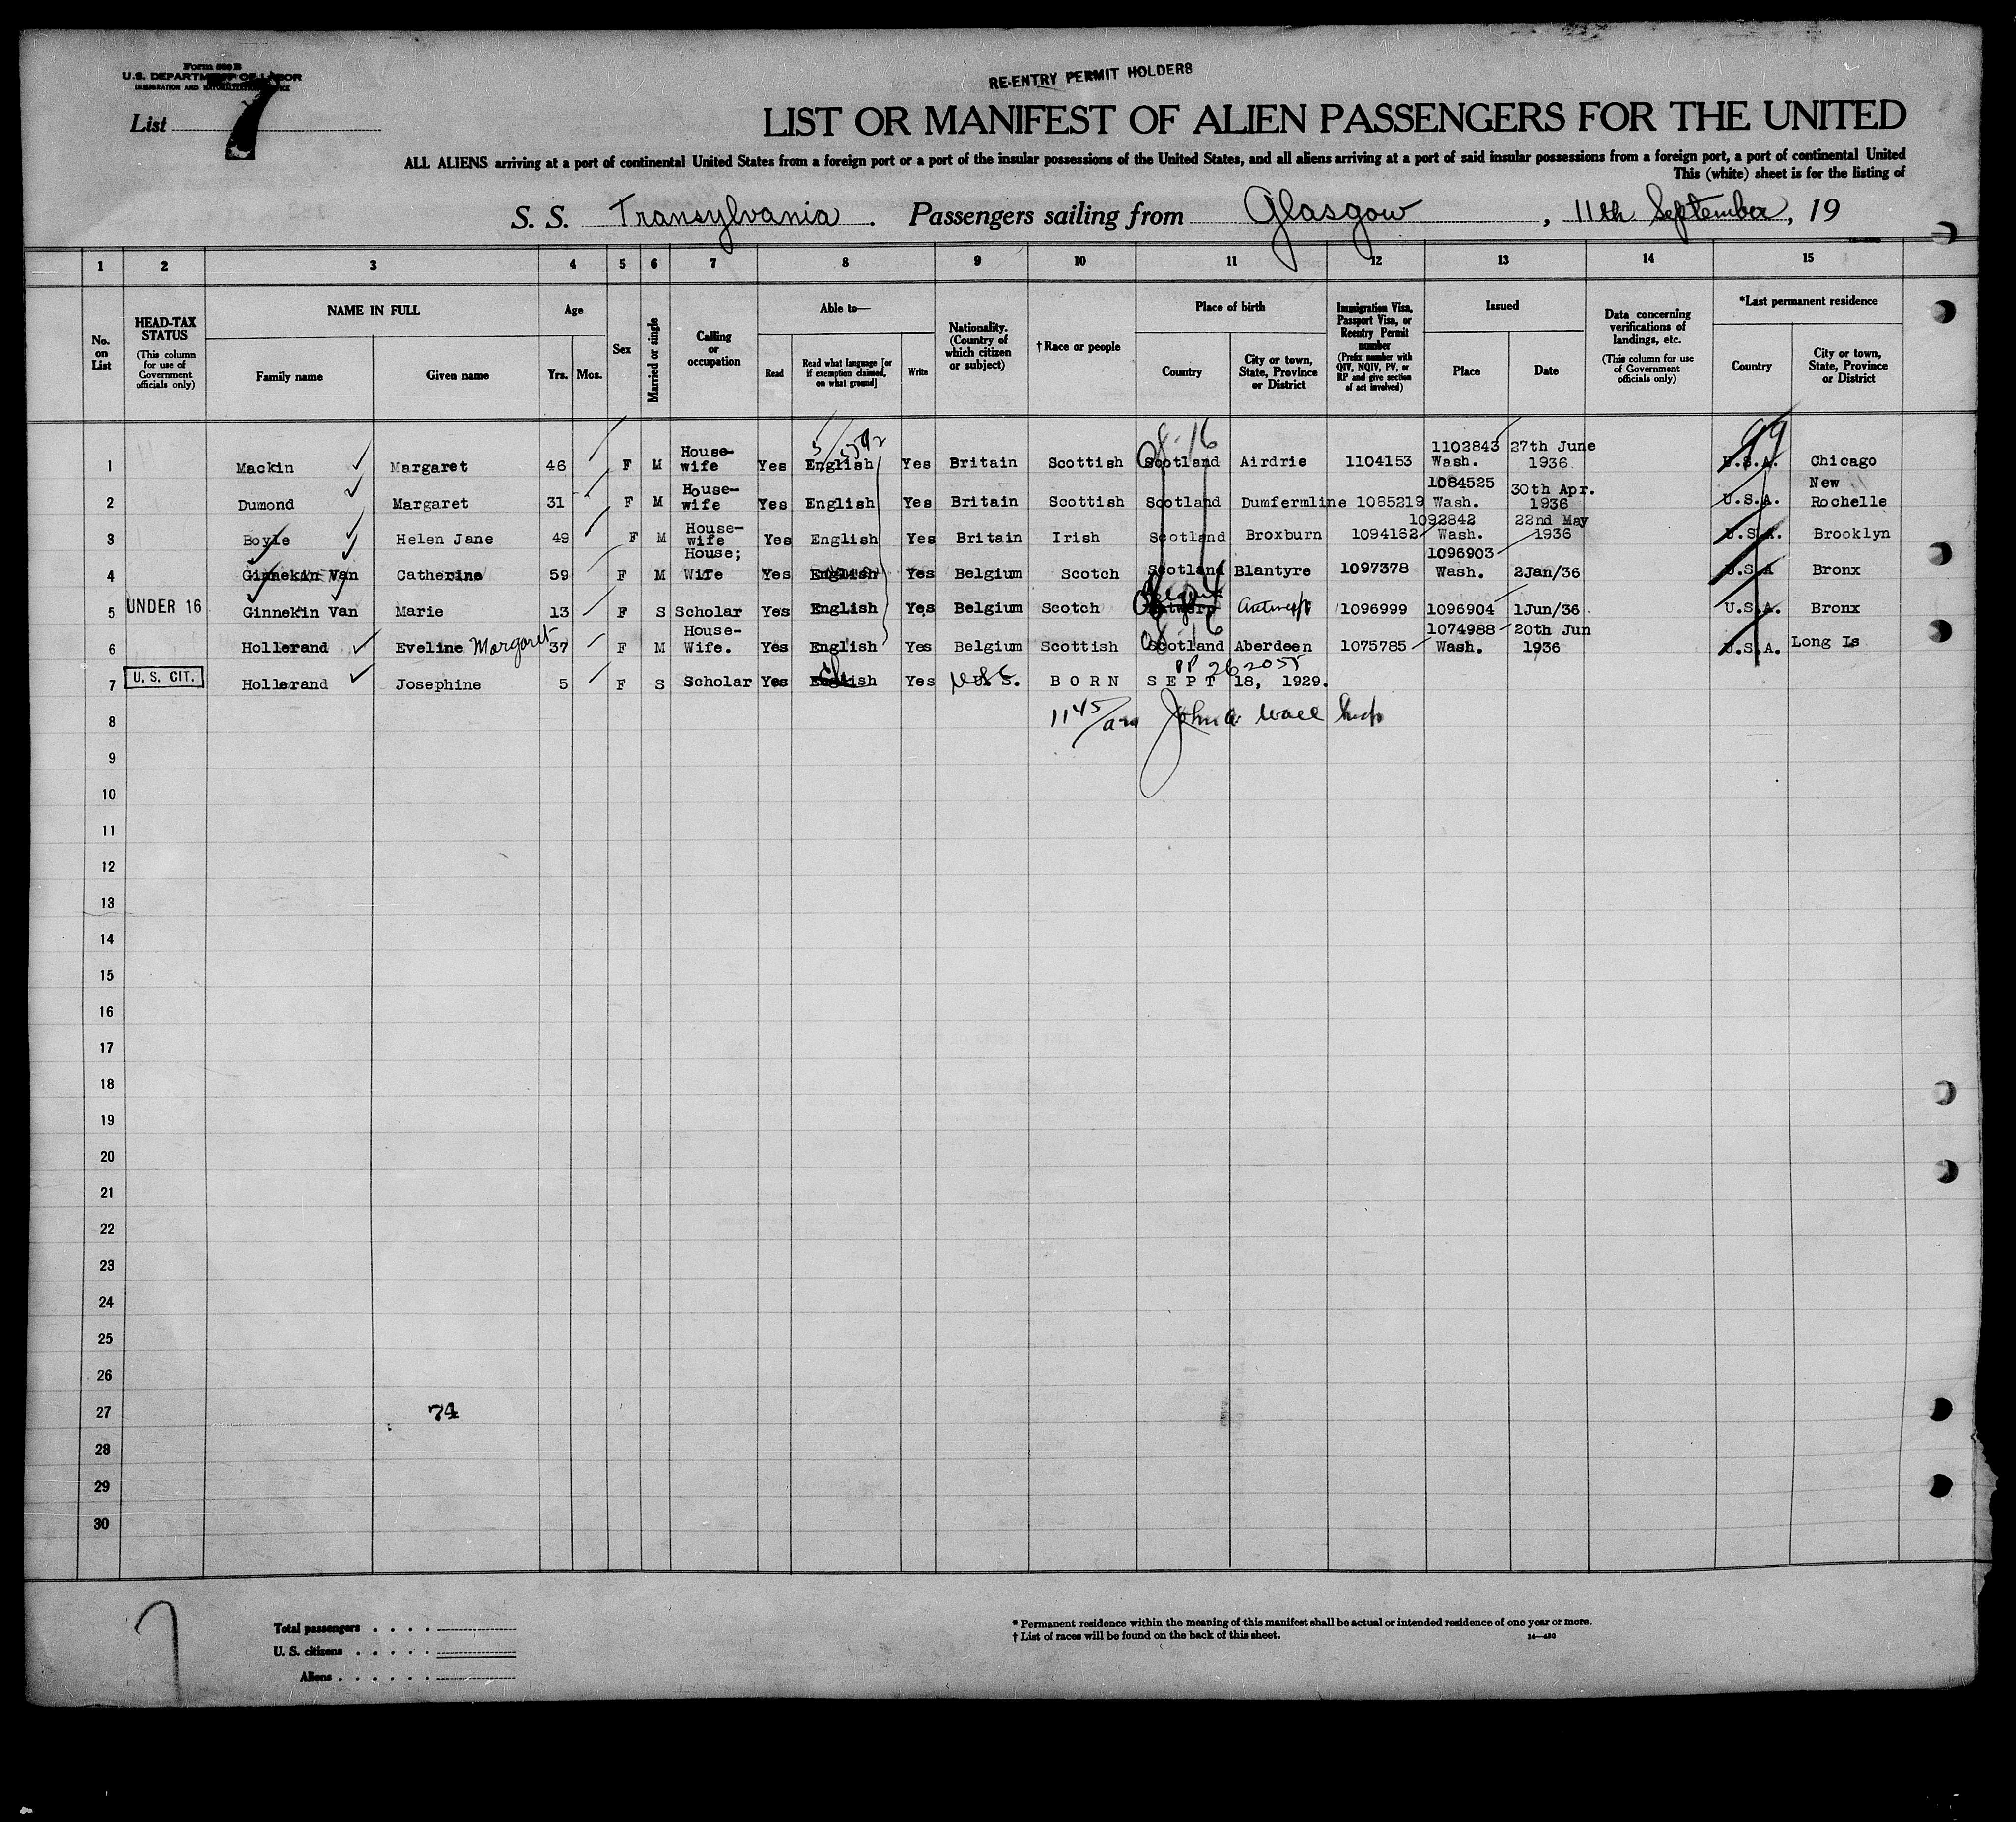 Form 500 B
U.S. DEPARTMENT OF LABOR
IMMIGRATION AND NATURALIZATION SERVICE
RE-ENTRY PERMIT HOLDERS
List 7
LIST OR MANIFEST OF ALIEN PASSENGERS FOR THE UNITED
ALL ALIENS arriving at a port of continental United States from a foreign port or a port of the insular possessions of the United States, and all aliens arriving at a port of said insular possessions from a foreign port, a port of continental United
This (white) sheet is for the listing of
S. S. Transylvania. Passengers sailing from Glasgow, 11th September, 19
1 2 3 4 5 6 7 8 9 10 11 12 13 14 15
No. on List
HEAD-TAX STATUS (This column for use of Government officials only)
NAME IN FULL
Family name Given name
Age
Yrs. Mos.
Sex
Married or single
Calling or occupation
Able to—
Read Read what language [or if exemption claimed, on what ground] Write
Nationality. (Country of which citizen or subject)
†Race or people
Place of birth
Country City or town, State, Province or District
Immigration Visa, Passport Visa, or Reentry Permit number (Prefix number with QIV, NQIV, PV, or RP and give section of act involved)
Issued
Place Date
Data concerning verifications of landings, etc. (This column for use of Government officials only)
*Last permanent residence
Country City or town, State, Province or District
8-16
99
1 Mackin Margaret 46 F M House-wife Yes English Yes Britain Scottish Scotland Airdrie 1104153 1102843 Wash. 27th June 1936 U.S.A. Chicago
2 Dumond Margaret 31 F M House-wife Yes English Yes Britain Scottish Scotland Dumfermline 1085219 1084525 Wash. 30th Apr. 1936 U.S.A. New Rochelle
3 Boyle Helen Jane 49 F M House-wife Yes English Yes Britain Irish Scotland Broxburn 1094162 1092842 Wash. 22nd May 1936 U.S.A. Brooklyn
4 Ginnekin Van Catherine 59 F M House; Wife Yes English Yes Belgium Scotch Scotland Blantyre 1097378 1096903 Wash. 2Jan/36 U.S.A Bronx
5 UNDER 16 Ginnekin Van Marie 13 F S Scholar Yes English Yes Belgium Scotch Antwerp Antwerp 1096999 1096904 1Jun/36 U.S.A. Bronx
8-16
6 Hollerand Eveline Margaret 37 F M House-Wife. Yes English Yes Belgium Scottish Scotland Aberdeen 1075785 1074988 Wash. 20th Jun 1936 U.S.A. Long Is
PP 262055
7 U. S. CIT. Hollerand Josephine 5 F S Scholar Yes English Yes U. S. BORN SEPT 18, 1929.
8 1145/am John A. Wall Insp
9
10
11
12
13
14
15
16
17
18
19
20
21
22
23
24
25
26
27 74
28
29
30
7
Total passengers
U. S. citizens
Aliens
* Permanent residence within the meaning of this manifest shall be actual or intended residence of one year or more.
† List of races will be found on the back of this sheet.
14—430